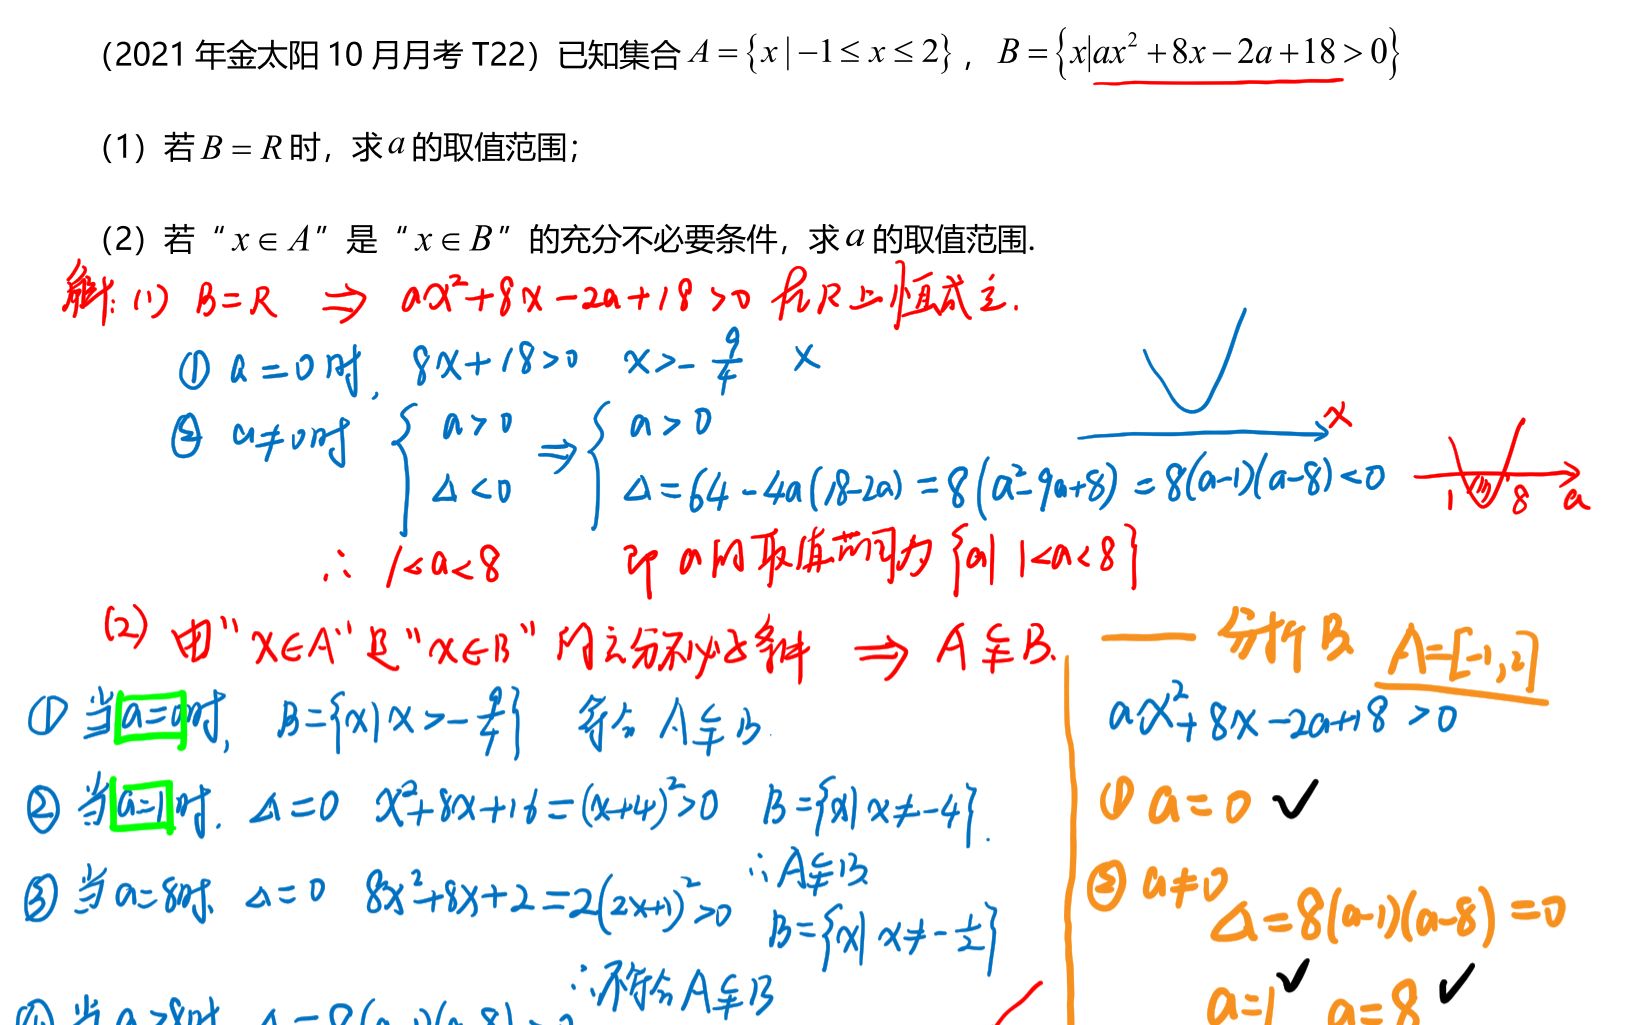 （2021 年金太阳 10 月月考 T22）已知集合 A = {x | −1 ≤ x ≤ 2}， B = {x|ax² + 8x − 2a + 18 > 0}
（1）若 B = R 时，求 a 的取值范围；
（2）若 “x ∈ A” 是 “x ∈ B” 的充分不必要条件，求 a 的取值范围.
解: (1) B=R ⇒ ax²+8x−2a+18>0 在R上恒成立.
① a=0时, 8x+18>0 x>−9/4 ×
② a≠0时 { a>0 Δ<0 ⇒ { a>0 Δ=64−4a(18−2a)=8(a²−9a+8)=8(a−1)(a−8)<0
x
1 8 a
∴ 1<a<8 即 a的取值范围为{a| 1<a<8}
(2) 由“x∈A”是“x∈B”的充分不必要条件 ⇒ A⫋B. — 分析B A=[−1,2]
① 当a=0时, B={x|x>−9/4} 符合 A⫋B.
② 当a=1时. Δ=0 x²+8x+16=(x+4)²>0 B={x|x≠−4}.
∴A⫋B
③ 当a=8时. Δ=0 8x²+8x+2=2(2x+1)²>0 B={x|x≠−1/2}
∴不符合A⫋B
④ 当a>8时 Δ=8(a−1)(a−8)>0
ax²+8x−2a+18>0
① a=0 ✓
② a≠0
Δ=8(a−1)(a−8)=0
a=1 ✓ a=8 ✓